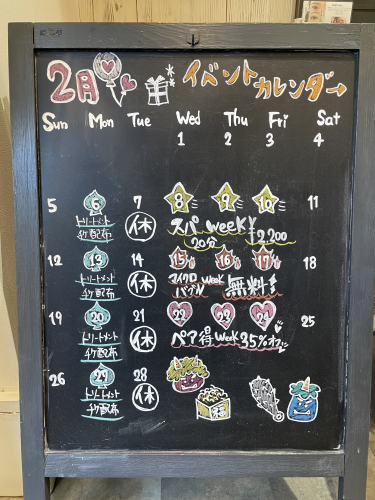 2月 イベントカレンダー→
Sun Mon Tue Wed Thu Fri Sat
1 2 3 4
5 6 7 8 9 10 11
トリートメント 休 スパ week ¥2,200
チケ配布 20分
12 13 14 15 16 17 18
トリートメント 休 マイクロ week 無料!
チケ配布 バブル
19 20 21 22 23 24 25
トリートメント 休 ペア得 week 35%オフ
チケ配布
26 27 28
トリートメント 休
チケ配布 福